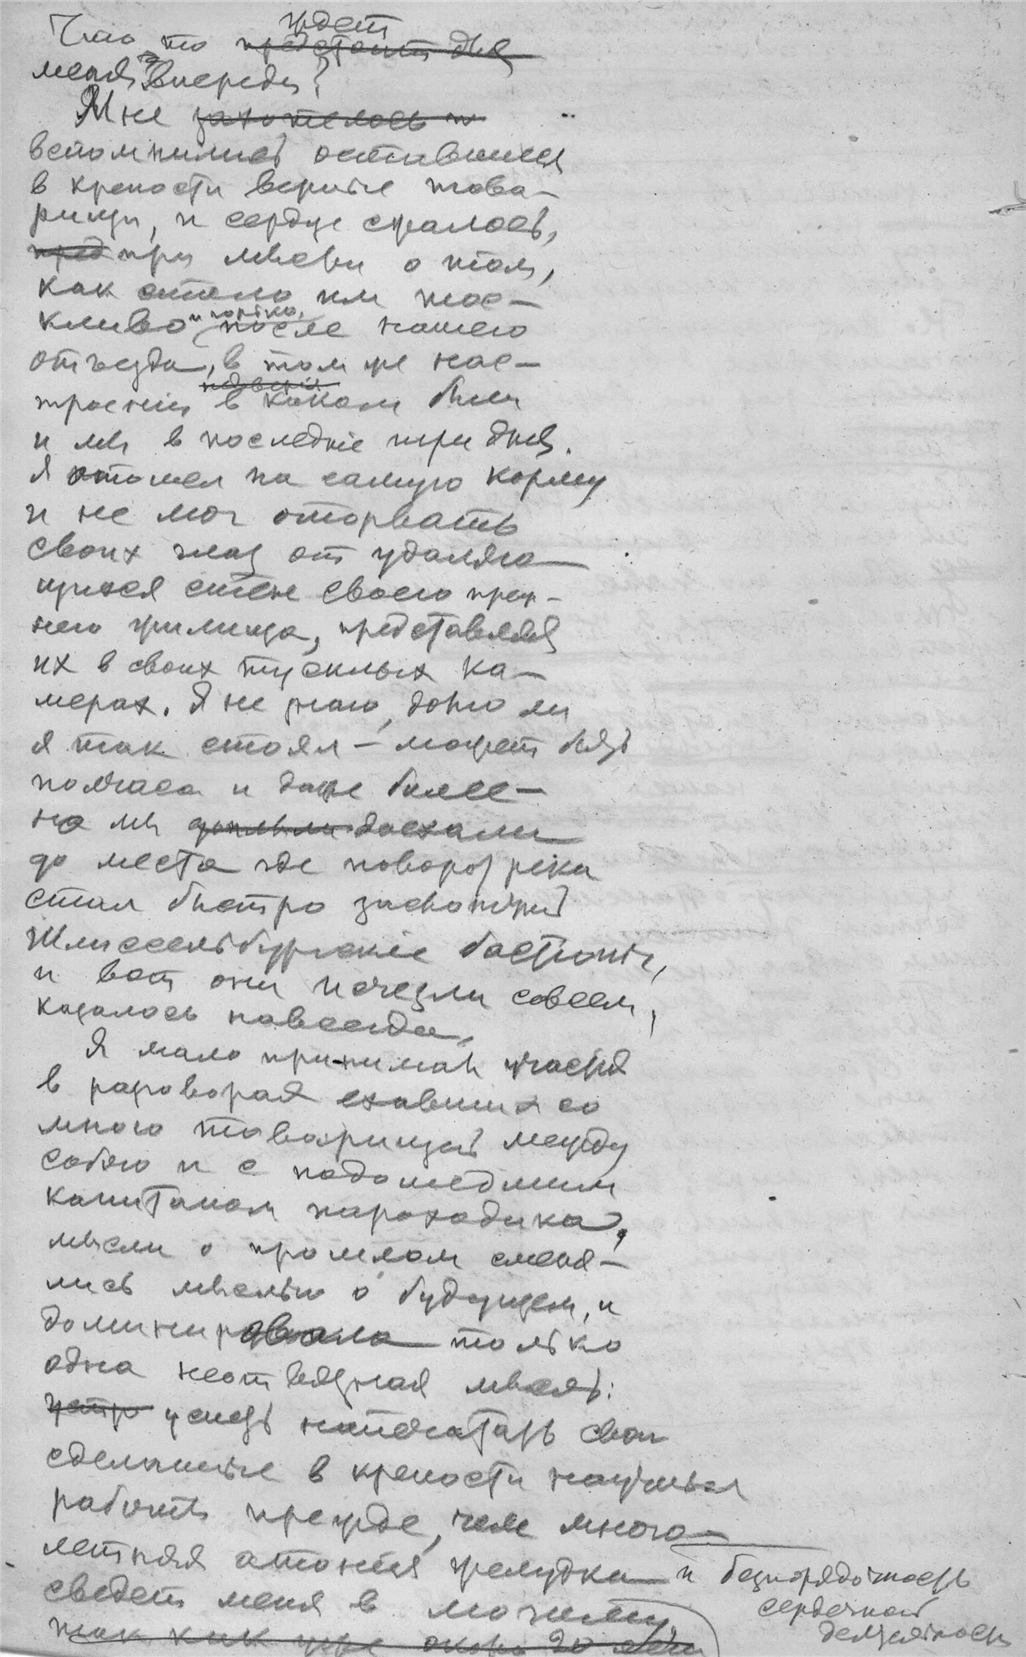 ждет
Что-то предстоит для
меня впереди?
Мне захотелось и
вспомнились оставшиеся
в крепости верные това-
рищи, и сердце сжалось,
пред при мысли о том,
как стало им тос-
кливо и горько после нашего
отъезда, в том же нас-
троении в каком были
и мы в последние три дня.
Я отошел на самую корму
и не мог оторвать
своих глаз от удаляю-
щихся стен своего преж-
него жилища, представляя
их в своих тусклых ка-
мерах. Я не знаю, долго ли
я так стоял – может быть
полчаса и даже более –
но мы доплыли доехали
до места где поворот реки
стал быстро заслонять
Шлиссельбургские бастионы,
и вот они исчезли совсем,
казалось навсегда.
Я мало принимал участия
в разговорах ехавших со
мною товарищей между
собою и с подошедшим
капитаном пароходика,
мысли о прошлом сменя-
лись мыслью о будущем, и
доминировала только
одна неотвязная мысль:
успеть напечатать свои
сделанные в крепости научные
работы прежде, чем много-
летняя атония желудка и безпорядочность
сердечной
деятельности
сведет меня в могилу
так как уже около 20 лет